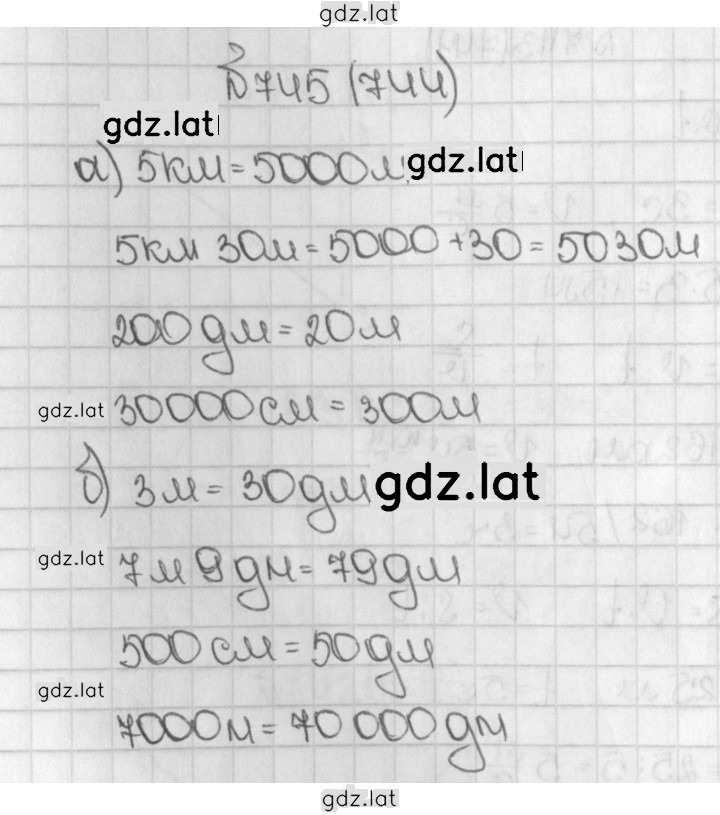 gdz.lat
№745 (744)
gdz.lat
а) 5км = 5000м gdz.lat
5км 30м = 5000 + 30 = 5030м
200дм = 20м
gdz.lat 30000см = 300м
б) 3м = 30дм gdz.lat
gdz.lat 7м 9дм = 79дм
500см = 50дм
gdz.lat
7000м = 70 000дм
gdz.lat